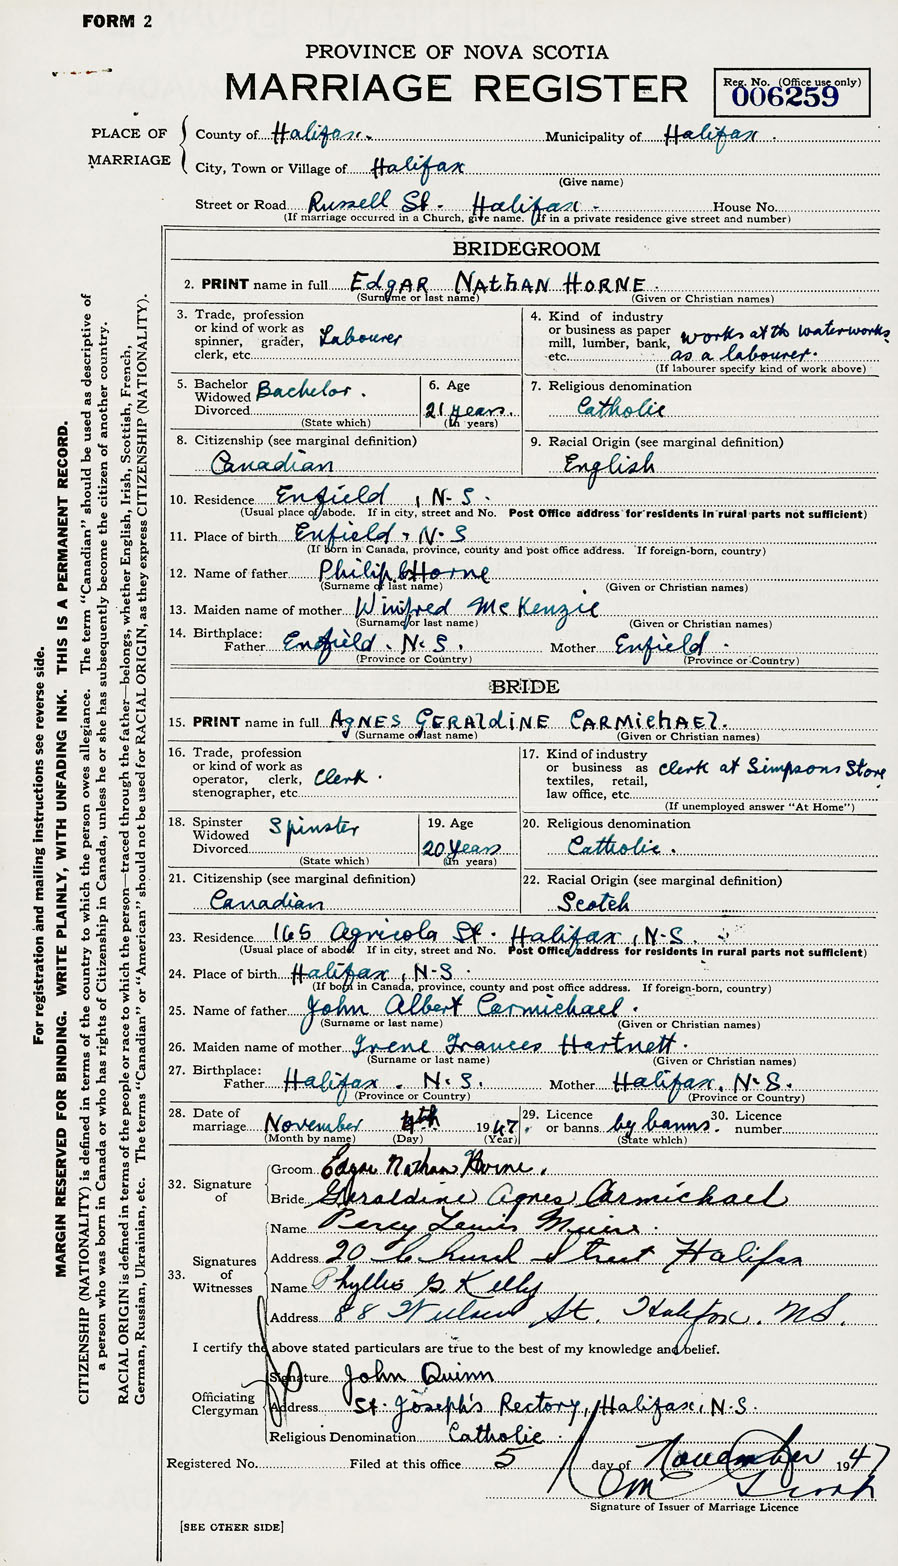 FORM 2
PROVINCE OF NOVA SCOTIA
MARRIAGE REGISTER
Reg. No. (Office use only)
006259
PLACE OF MARRIAGE
County of Halifax. Municipality of Halifax.
City, Town or Village of Halifax
(Give name)
Street or Road Russell St. Halifax - House No.
(If marriage occurred in a Church, give name. If in a private residence give street and number)
BRIDEGROOM
2. PRINT name in full EdgAR NAthAN HORNE.
(Surname or last name) (Given or Christian names)
3. Trade, profession
or kind of work as
spinner, grader,
clerk, etc. Labourer
4. Kind of industry
or business as paper
mill, lumber, bank,
etc. works at the waterworks
as a labourer.
(If labourer specify kind of work above)
5. Bachelor
Widowed
Divorced Bachelor.
(State which)
6. Age
21 years.
(In years)
7. Religious denomination
Catholic
8. Citizenship (see marginal definition)
Canadian
9. Racial Origin (see marginal definition)
English
10. Residence Enfield, N-S.
(Usual place of abode. If in city, street and No. Post Office address for residents in rural parts not sufficient)
11. Place of birth Enfield, N.S
(If Born in Canada, province, county and post office address. If foreign-born, country)
12. Name of father Philip Horne
(Surname or last name) (Given or Christian names)
13. Maiden name of mother Winifred McKenzie
(Surname or last name) (Given or Christian names)
14. Birthplace:
Father Enfield. N.S. Mother Enfield.
(Province or Country) (Province or Country)
BRIDE
15. PRINT name in full AgNES GERAldINE CARMIChAEl.
(Surname or last name) (Given or Christian names)
16. Trade, profession
or kind of work as
operator, clerk,
stenographer, etc. Clerk.
17. Kind of industry
or business as
textiles, retail,
law office, etc. clerk at Simpsons Store
(If unemployed answer "At Home")
18. Spinster
Widowed
Divorced Spinster
(State which)
19. Age
20 years
(In years)
20. Religious denomination
Catholic.
21. Citizenship (see marginal definition)
Canadian
22. Racial Origin (see marginal definition)
Scotch
23. Residence 165 Agricola St. Halifax, N-S.
(Usual place of abode. If in city, street and No. Post Office address for residents in rural parts not sufficient)
24. Place of birth Halifax, N-S
(If born in Canada, province, county and post office address. If foreign-born, country)
25. Name of father John Albert Carmichael.
(Surname or last name) (Given or Christian names)
26. Maiden name of mother Irene Frances Hartnett.
(Surname or last name) (Given or Christian names)
27. Birthplace:
Father Halifax. N.S. Mother Halifax, N.S.
(Province or Country) (Province or Country)
28. Date of
marriage November 4th 1947.
(Month by name) (Day) (Year)
29. Licence
or banns by banns.
(State which)
30. Licence
number
32. Signature of
Groom Edgar Nathan Horne.
Bride Geraldine Agnes Carmichael
33. Signatures of Witnesses
Name Percy Lewis
Address 20 Church Street Halifax
Name Phyllis G. Kelly
Address 88 St. Halifax. N.S.
I certify the above stated particulars are true to the best of my knowledge and belief.
Officiating Clergyman
Signature John Quinn
Address St. Joseph's Rectory, Halifax, N-S.
Religious Denomination Catholic.
Registered No. Filed at this office 5 day of November 1947
Signature of Issuer of Marriage Licence
[SEE OTHER SIDE]
For registration and mailing instructions see reverse side.
MARGIN RESERVED FOR BINDING. WRITE PLAINLY, WITH UNFADING INK. THIS IS A PERMANENT RECORD.
CITIZENSHIP (NATIONALITY) is defined in terms of the country to which the person owes allegiance. The term "Canadian" should be used as descriptive of
a person who was born in Canada or who has rights of Citizenship in Canada, unless he or she has subsequently become the citizen of another country.
RACIAL ORIGIN is defined in terms of the people or race to which the person—traced through the father—belongs, whether English, Irish, Scottish, French,
German, Russian, Ukrainian, etc. The terms "Canadian" or "American" should not be used for RACIAL ORIGIN, as they express CITIZENSHIP (NATIONALITY).